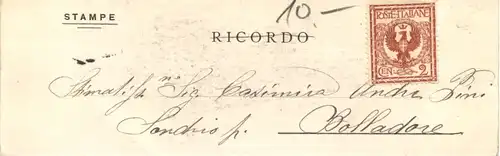 10.-
STAMPE
RICORDO
POSTE ITALIANE
CEN. 2
Stimatiss. Sig. Casimira Andre Pini
Sondrio p. Bolladore